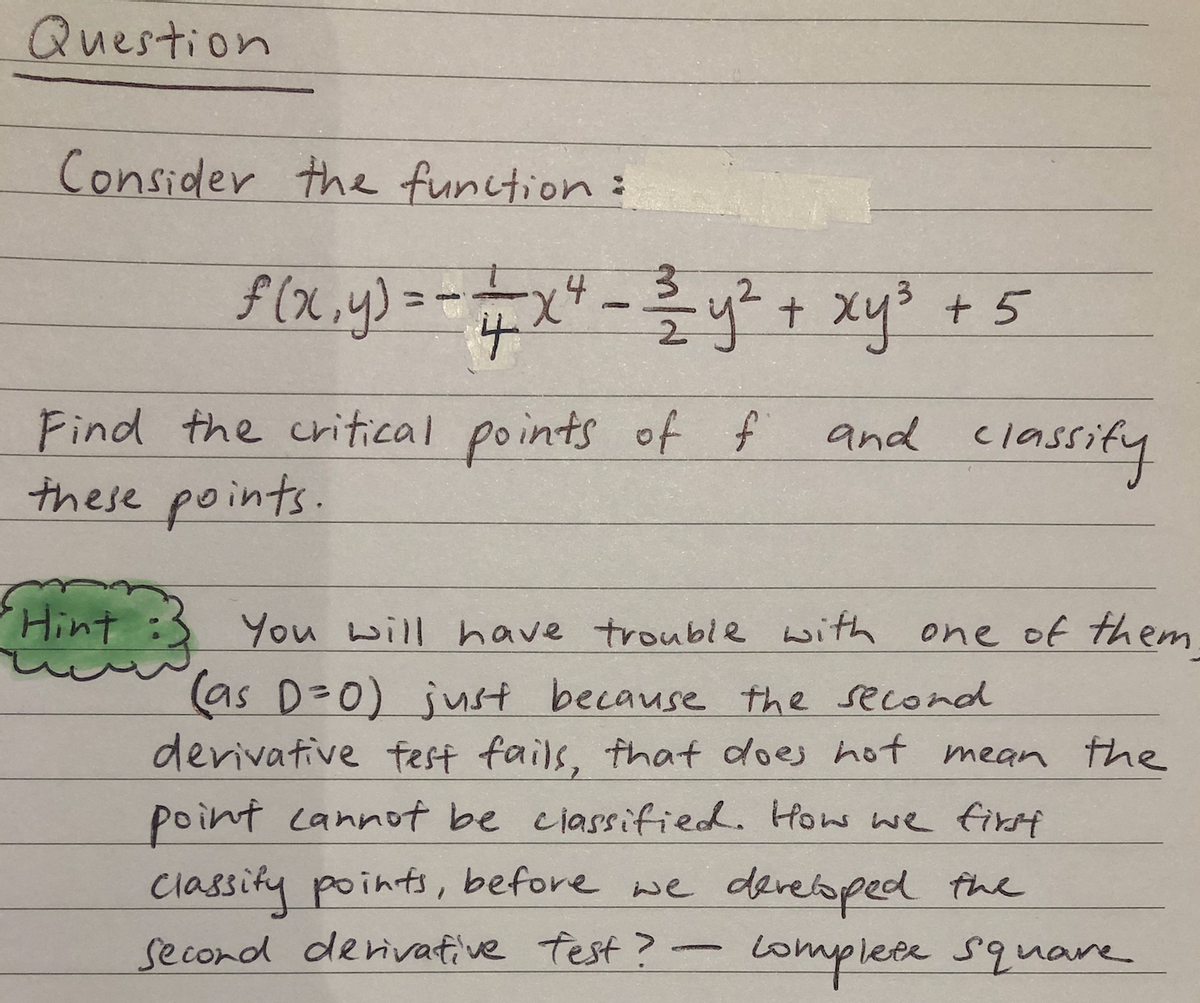 Question
Consider the function :
f(x,y) = - 1/4 x⁴ - 3/2 y² + xy³ + 5
Find the critical points of f and classify
these points.
Hint : You will have trouble with one of them,
(as D=0) just because the second
derivative test fails, that does not mean the
point cannot be classified. How we first
classify points, before we developed the
second derivative test? — complete square